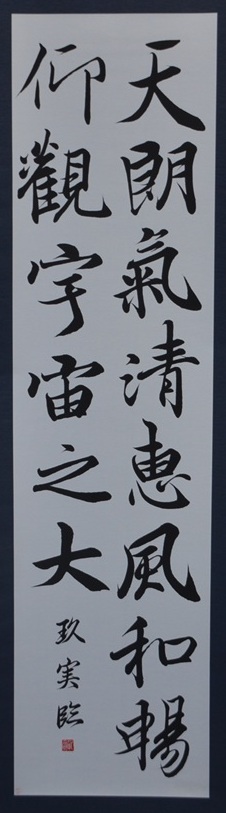 天朗氣清惠風和暢
仰觀宇宙之大
玖実臨